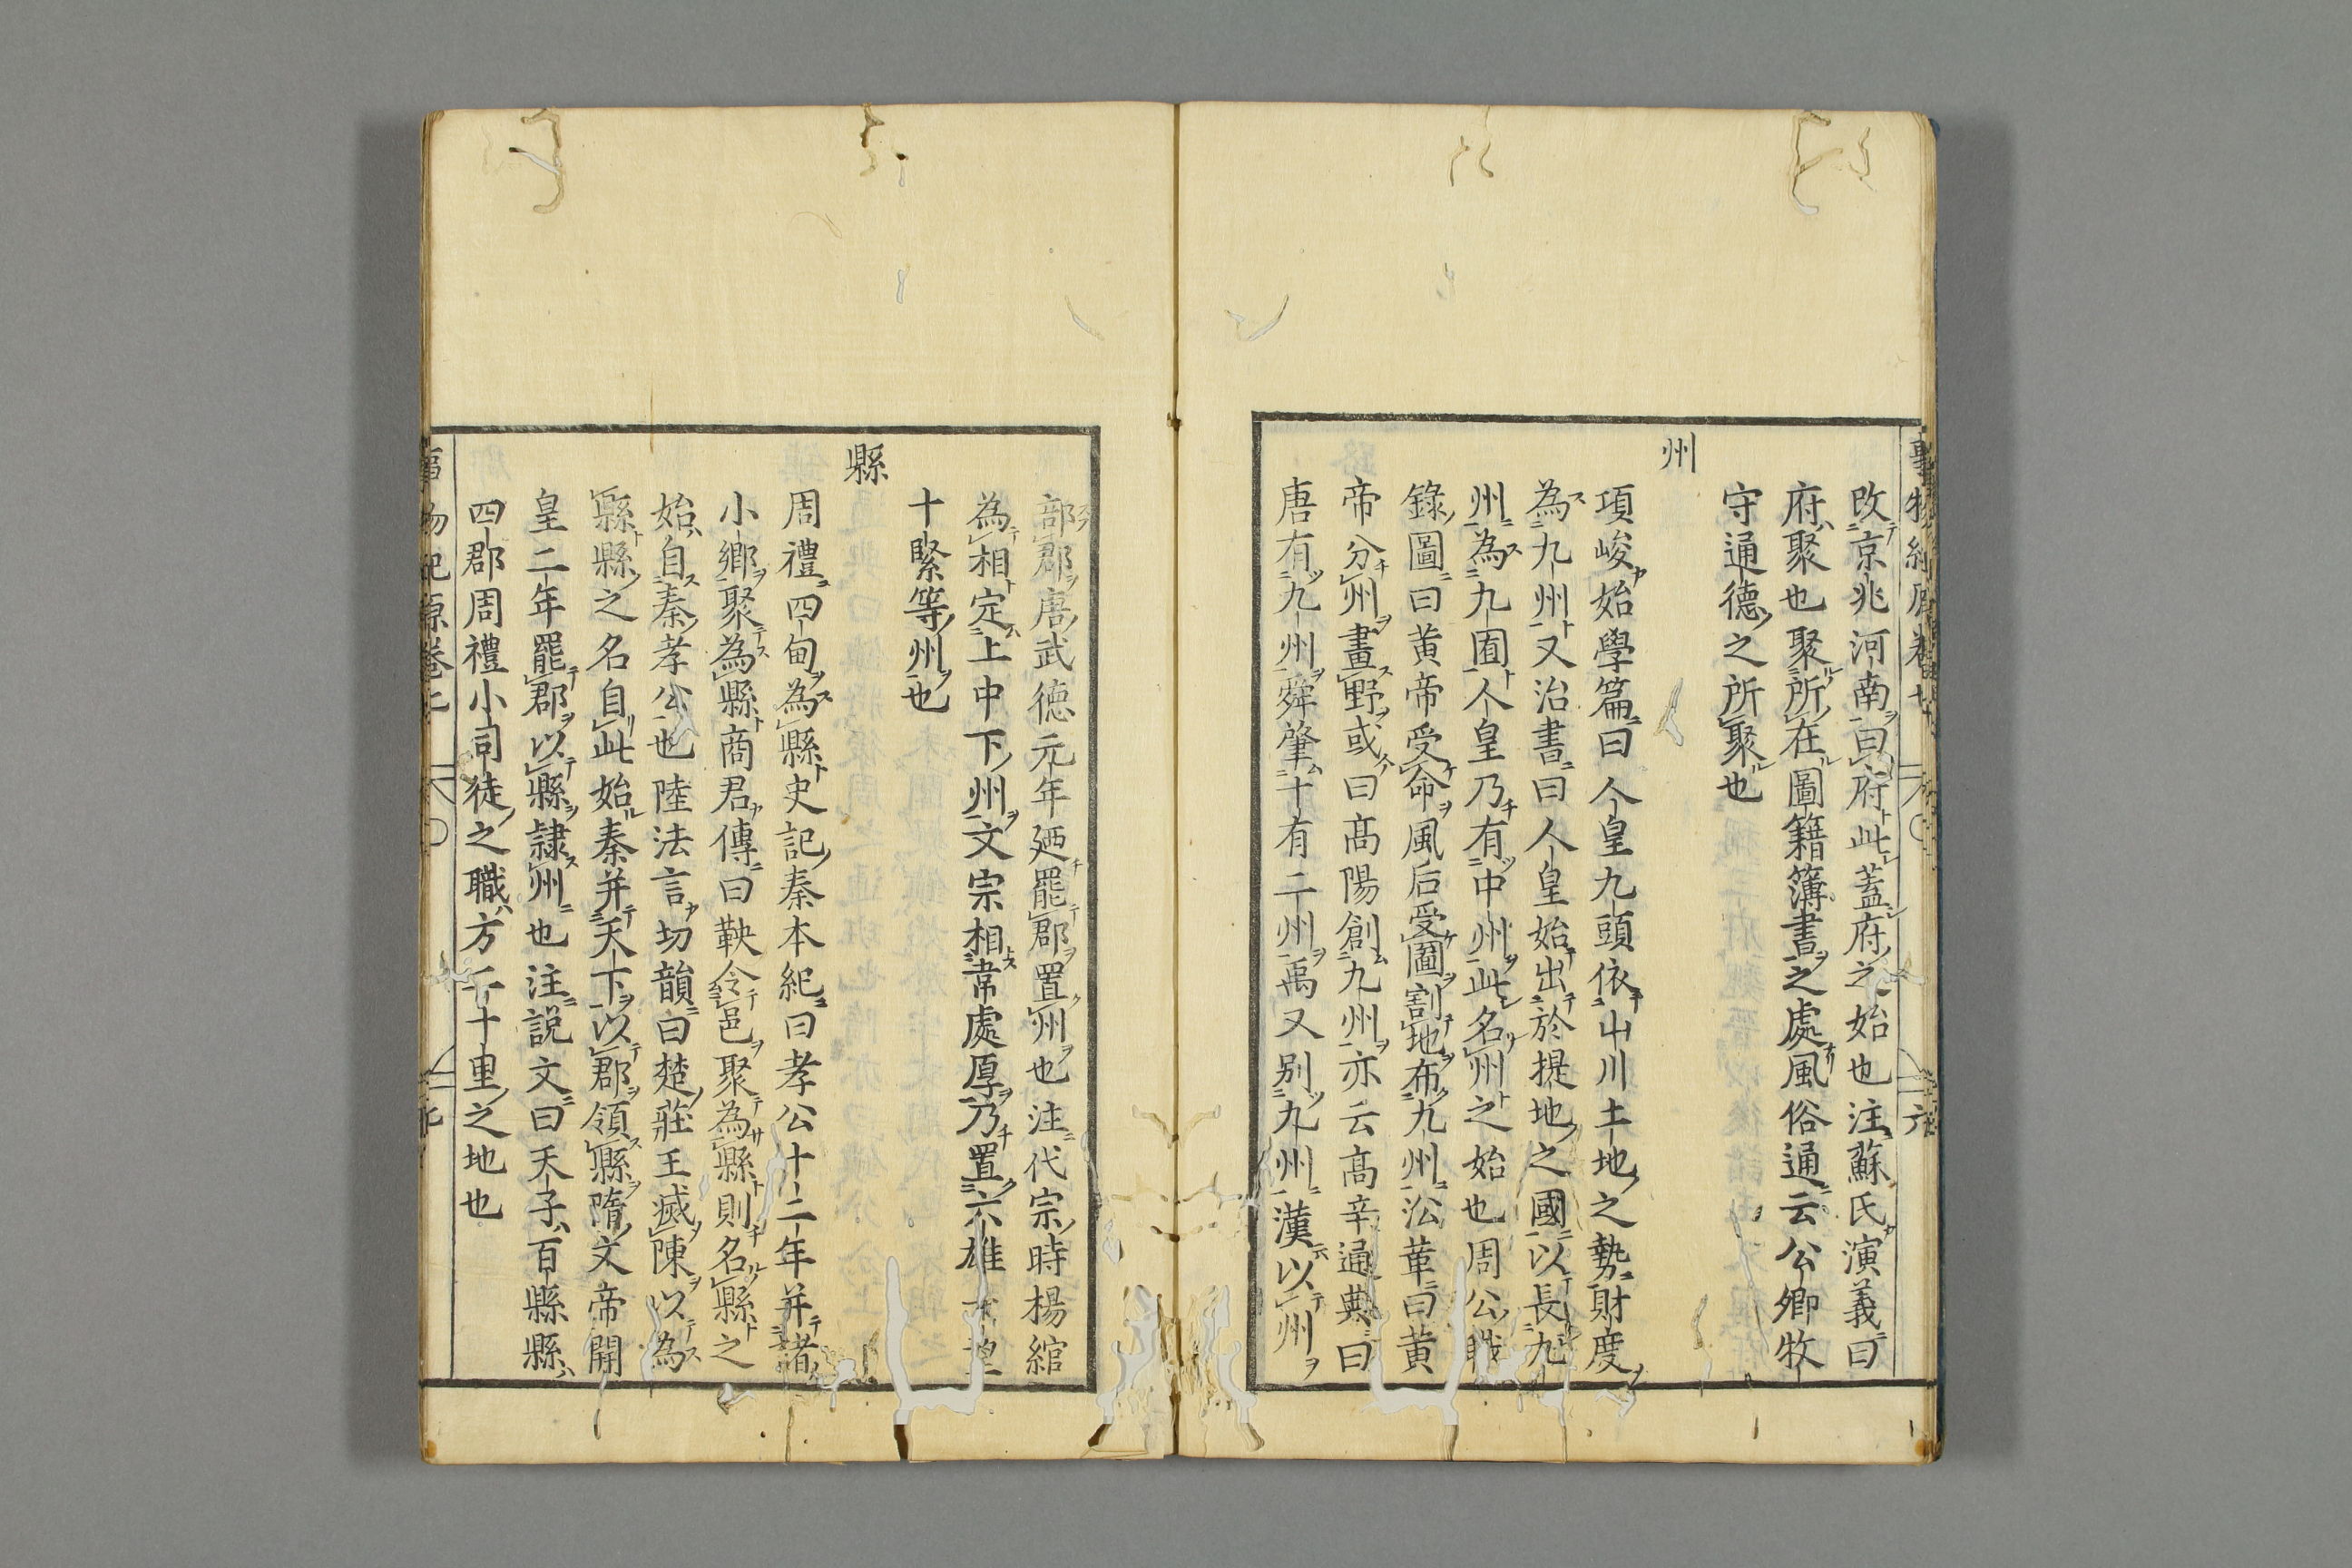 改京兆河南曰府此蓋府之始也注蘇氏演義曰
府聚也聚所在圖籍簿書之處風俗通云公卿牧
守通德之所聚也
州
項峻始學篇曰人皇九頭依山川土地之勢財度
為九州又治書曰人皇始出於提地之國以長九
州為九囿人皇乃有中州此名州之始也周公職
錄圖曰黃帝受命風后受圖割地布九州㳂革曰黃
帝分州畫野或曰髙陽創九州亦云髙辛通典曰
唐有九州舜肇十有二州禹又别九州漢以州
部郡唐武德元年廼罷郡置州也注代宗時楊綰
為相定上中下州文宗相韋處厚乃置六雄十望
十緊等州也
縣
周禮四甸為縣史記秦本紀曰孝公十二年并諸
小鄉聚為縣商君傳曰鞅令邑聚為縣則名縣之
始自秦孝公也陸法言切韻曰楚莊王滅陳以為
縣縣之名自此始秦并天下以郡領縣隋文帝開
皇二年罷郡以縣隷州也注説文曰天子百縣縣
四郡周禮小司徒之職方二十里之地也